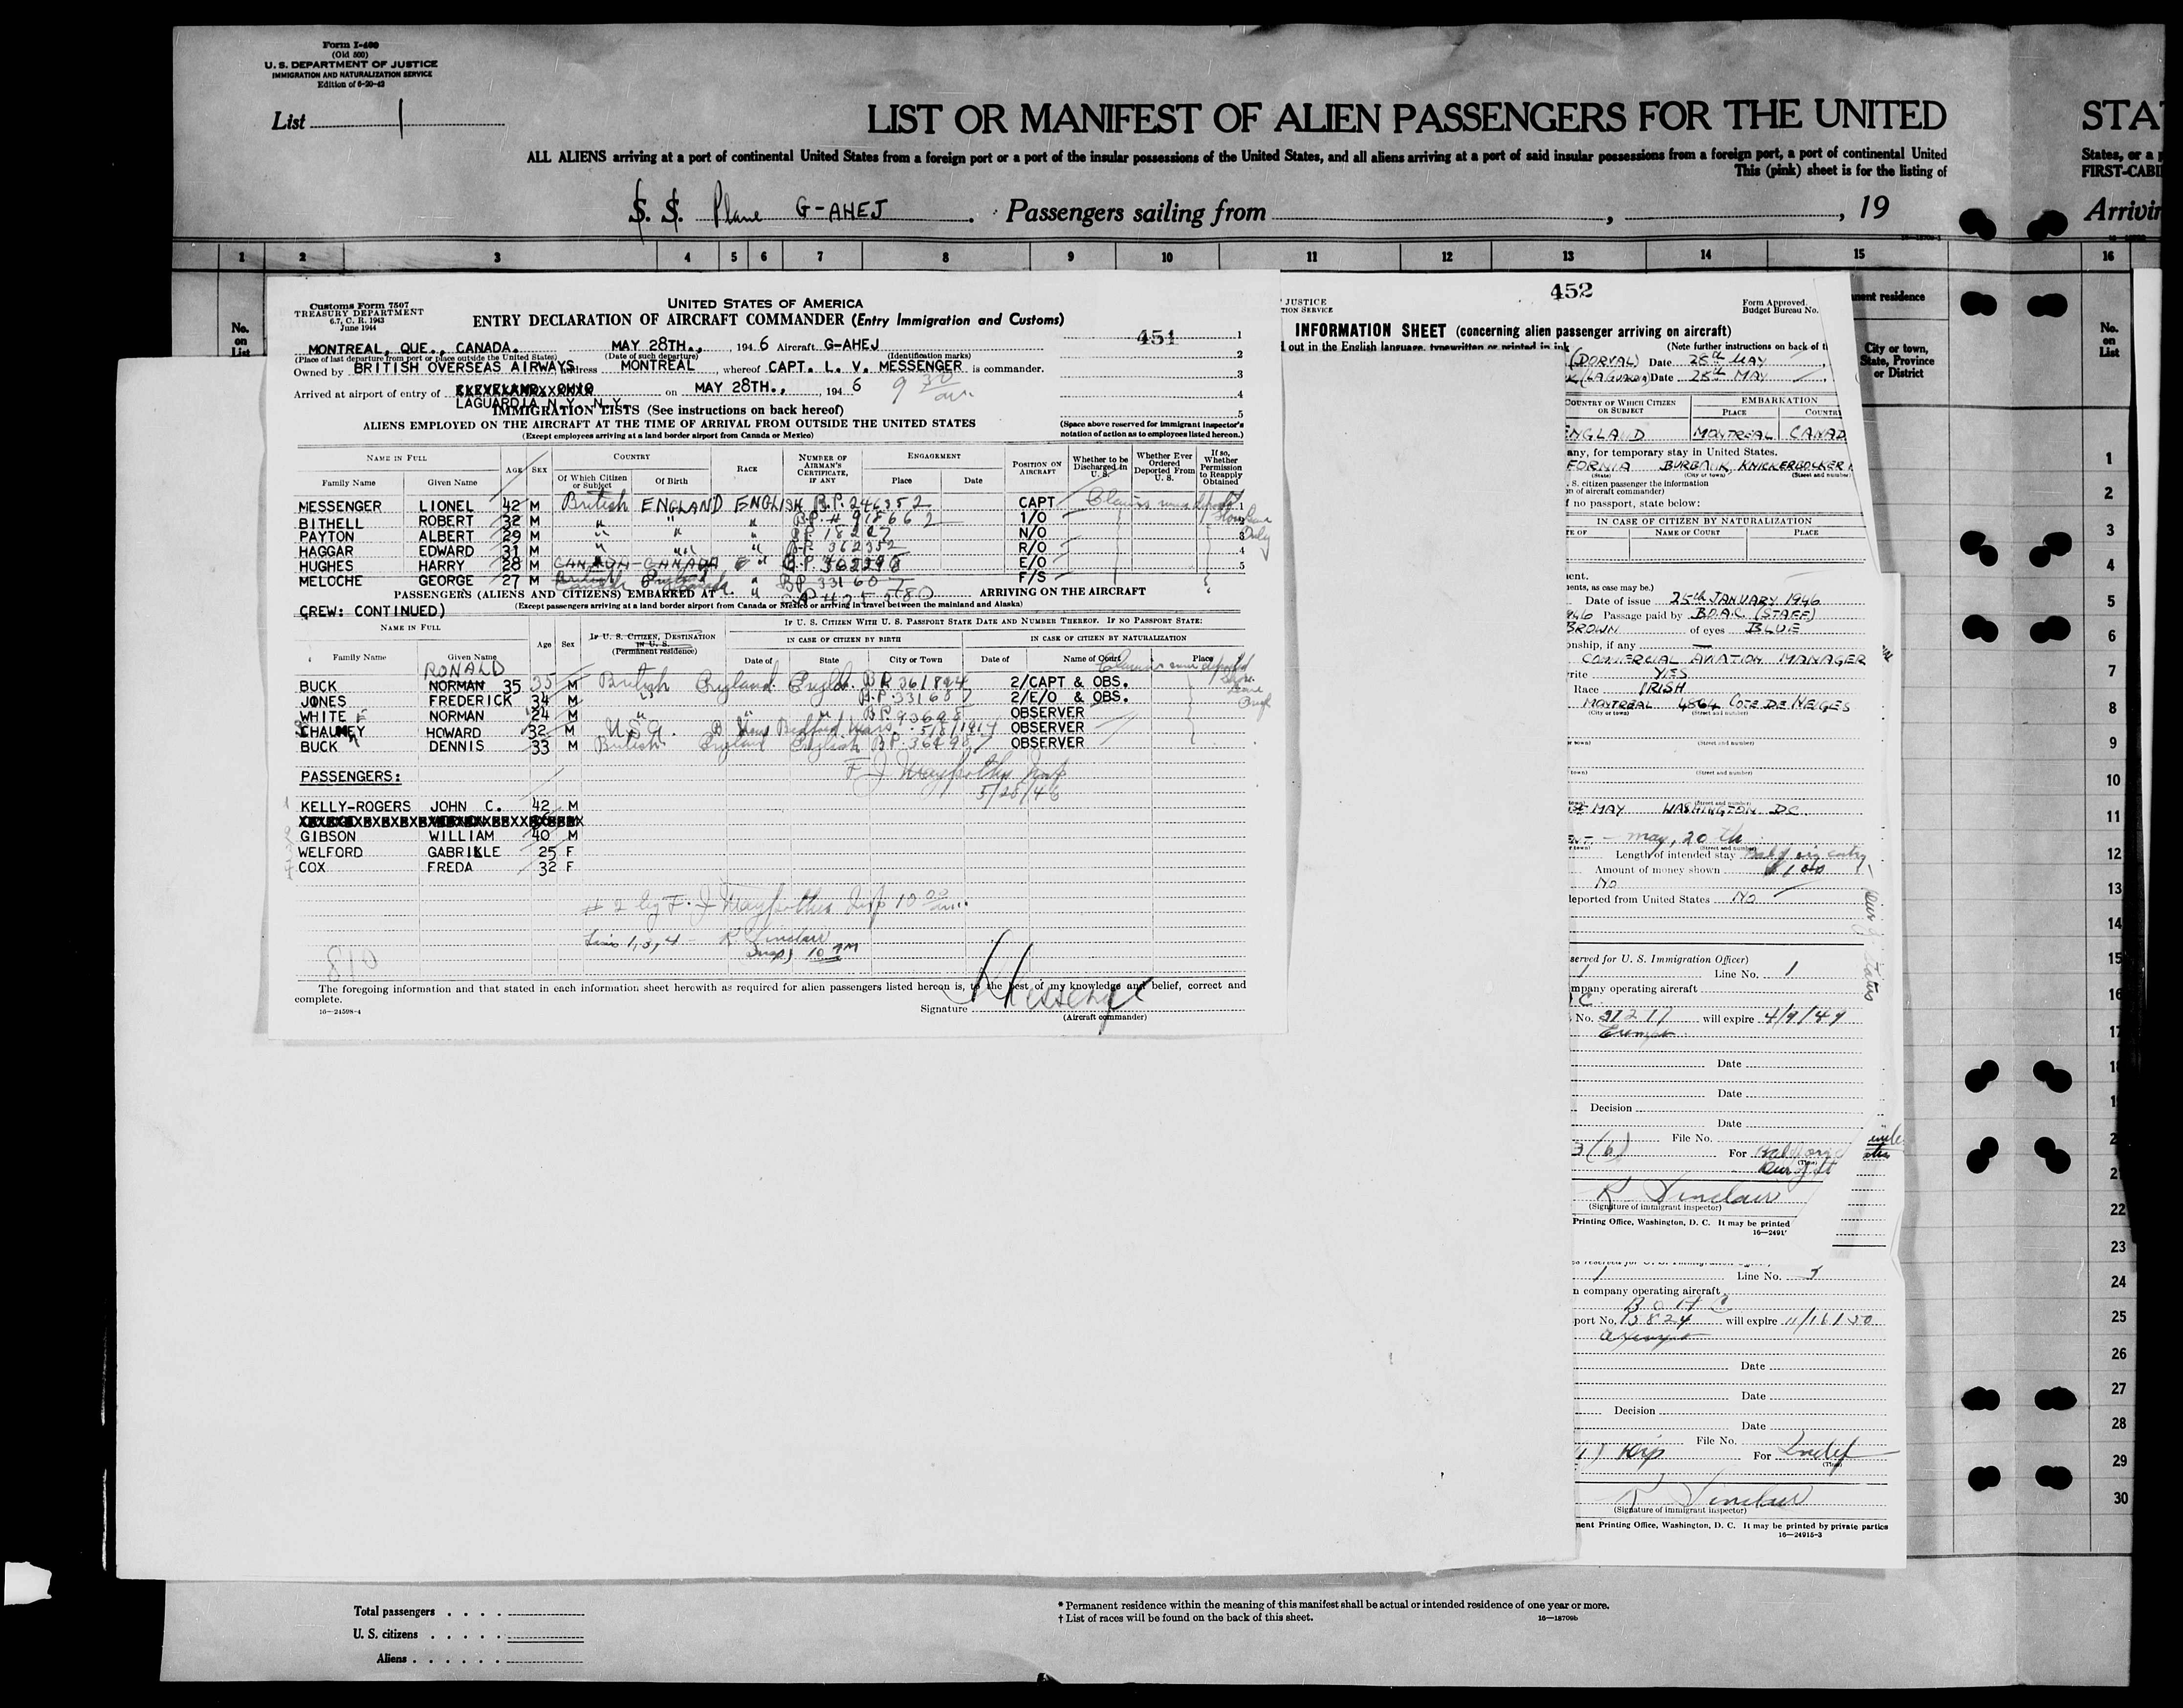 Form I-400
(Old 500)
U. S. DEPARTMENT OF JUSTICE
IMMIGRATION AND NATURALIZATION SERVICE
Edition of 6-20-42
List 1
LIST OR MANIFEST OF ALIEN PASSENGERS FOR THE UNITED
STA
ALL ALIENS arriving at a port of continental United States from a foreign port or a port of the insular possessions of the United States, and all aliens arriving at a port of said insular possessions from a foreign port, a port of continental United
States, or a p
This (pink) sheet is for the listing of
FIRST-CABI
S. S. Plane G-AHEJ . Passengers sailing from , , 19
Arrivin
1 2 3 4 5 6 7 8 9 10 11 12 13 14 15 16
No. on List
Customs Form 7507
TREASURY DEPARTMENT
6.7, C. R. 1943
June 1944
UNITED STATES OF AMERICA
ENTRY DECLARATION OF AIRCRAFT COMMANDER (Entry Immigration and Customs)
451
MONTREAL, QUE., CANADA. MAY 28TH., 1946 Aircraft G-AHEJ
(Place of last departure from port or place outside the United States) (Date of such departure) (Identification marks)
Owned by BRITISH OVERSEAS AIRWAYS address MONTREAL, whereof CAPT. L. V. MESSENGER is commander.
Arrived at airport of entry of CLEVELAND, OHIO on MAY 28TH., 1946 9 30 am.
LAGUARDIA N.Y. N.Y.
IMMIGRATION LISTS (See instructions on back hereof)
ALIENS EMPLOYED ON THE AIRCRAFT AT THE TIME OF ARRIVAL FROM OUTSIDE THE UNITED STATES
(Except employees arriving at a land border airport from Canada or Mexico)
1
2
3
4
5
(Space above reserved for immigrant inspector's
notation of action as to employees listed hereon.)
NAME IN FULL AGE SEX COUNTRY RACE NUMBER OF AIRMAN'S CERTIFICATE, IF ANY ENGAGEMENT POSITION ON AIRCRAFT Whether to be Discharged in U. S. Whether Ever Ordered Deported From U. S. If so, Whether Permission to Reapply Obtained
Family Name Given Name Of Which Citizen or Subject Of Birth Place Date
MESSENGER LIONEL 42 M British ENGLAND ENGLISH B.P. 246352 CAPT
BITHELL ROBERT 32 M " " " 1/O
PAYTON ALBERT 29 M " " " N/O
HAGGAR EDWARD 31 M " " " B.P. 362352 R/O
HUGHES HARRY 28 M E/O
MELOCHE GEORGE 27 M F/S
PASSENGERS (ALIENS AND CITIZENS) EMBARKED AT ARRIVING ON THE AIRCRAFT
(Except passengers arriving at a land border airport from Canada or Mexico or arriving in travel between the mainland and Alaska)
CREW: CONTINUED)
NAME IN FULL Age Sex IF U. S. CITIZEN, DESTINATION IN U. S. (Permanent residence) IF U. S. CITIZEN WITH U. S. PASSPORT STATE DATE AND NUMBER THEREOF. IF NO PASSPORT STATE:
IN CASE OF CITIZEN BY BIRTH IN CASE OF CITIZEN BY NATURALIZATION
Family Name Given Name Date of State City or Town Date of Name of Court Place
RONALD
BUCK NORMAN 35 35 M British England B.P. 361894 2/CAPT & OBS.
JONES FREDERICK 34 M " 2/E/O & OBS.
WHITE NORMAN 24 M " " OBSERVER
HOWARD 32 M U.S.A. New Bedford Mass. OBSERVER
BUCK DENNIS 33 M British England English OBSERVER
5/28/46
PASSENGERS:
KELLY-ROGERS JOHN C. 42 M
GIBSON WILLIAM 40 M
WELFORD GABRIELLE 25 F
COX FREDA 32 F
Lines 1, 3, 4 R Sinclair
810
The foregoing information and that stated in each information sheet herewith as required for alien passengers listed hereon is, to the best of my knowledge and belief, correct and
complete.
16—24598-4
Signature Messenger
(Aircraft commander)
JUSTICE
TION SERVICE
452
Form Approved.
Budget Bureau No.
INFORMATION SHEET (concerning alien passenger arriving on aircraft)
out in the English language, typewritten or printed in ink
(Note further instructions on back of
(DORVAL) Date 28th MAY
(LAGUARDIA) Date 28th MAY
COUNTRY OF WHICH CITIZEN OR SUBJECT EMBARKATION
PLACE COUNTRY
ENGLAND MONTREAL CANAD
any, for temporary stay in United States.
FORNIA BURBANK KNICKERBOCKER
(State) (City or town) (Street and number)
S. citizen passenger the information
n of aircraft commander)
f no passport, state below:
IN CASE OF CITIZEN BY NATURALIZATION
TE OF NAME OF COURT PLACE
ment.
ments, as case may be.)
Date of issue 25th JANUARY 1946
946 Passage paid by B.O.A.C (STAFF)
BROWN of eyes BLUE
onship, if any —
COMMERCIAL AVIATION MANAGER
rite YES
Race IRISH
MONTREAL 4864 COTE DE NEIGES
(City or town) (Street and number)
(Street and number)
MAY WASHINGTON DC
may, 20 th
Length of intended stay
Amount of money shown $100
No
deported from United States No
served for U. S. Immigration Officer)
1 Line No. 1
mpany operating aircraft
C
No. 31217 will expire 4/9/49
Exempt
Date
Date
Decision
Date
File No.
3 (b) For
(Time)
R Sinclair
(Signature of immigrant inspector)
Printing Office, Washington, D. C. It may be printed
16—2491
1 Line No. 3
n company operating aircraft
B O A C
port No. 15824 will expire 11/16/50
Date
Date
Decision
Date
File No.
For Indef
(Time)
R Sinclair
(Signature of immigrant inspector)
ment Printing Office, Washington, D. C. It may be printed by private parties
16—24915-3
nent residence
City or town,
State, Province
or District
No. on List
1
2
3
4
5
6
7
8
9
10
11
12
13
14
15
16
17
18
1
2
2
22
23
24
25
26
27
28
29
30
Total passengers . . . .
U. S. citizens . . . . .
Aliens . . . . . .
* Permanent residence within the meaning of this manifest shall be actual or intended residence of one year or more.
† List of races will be found on the back of this sheet.
16—18709b